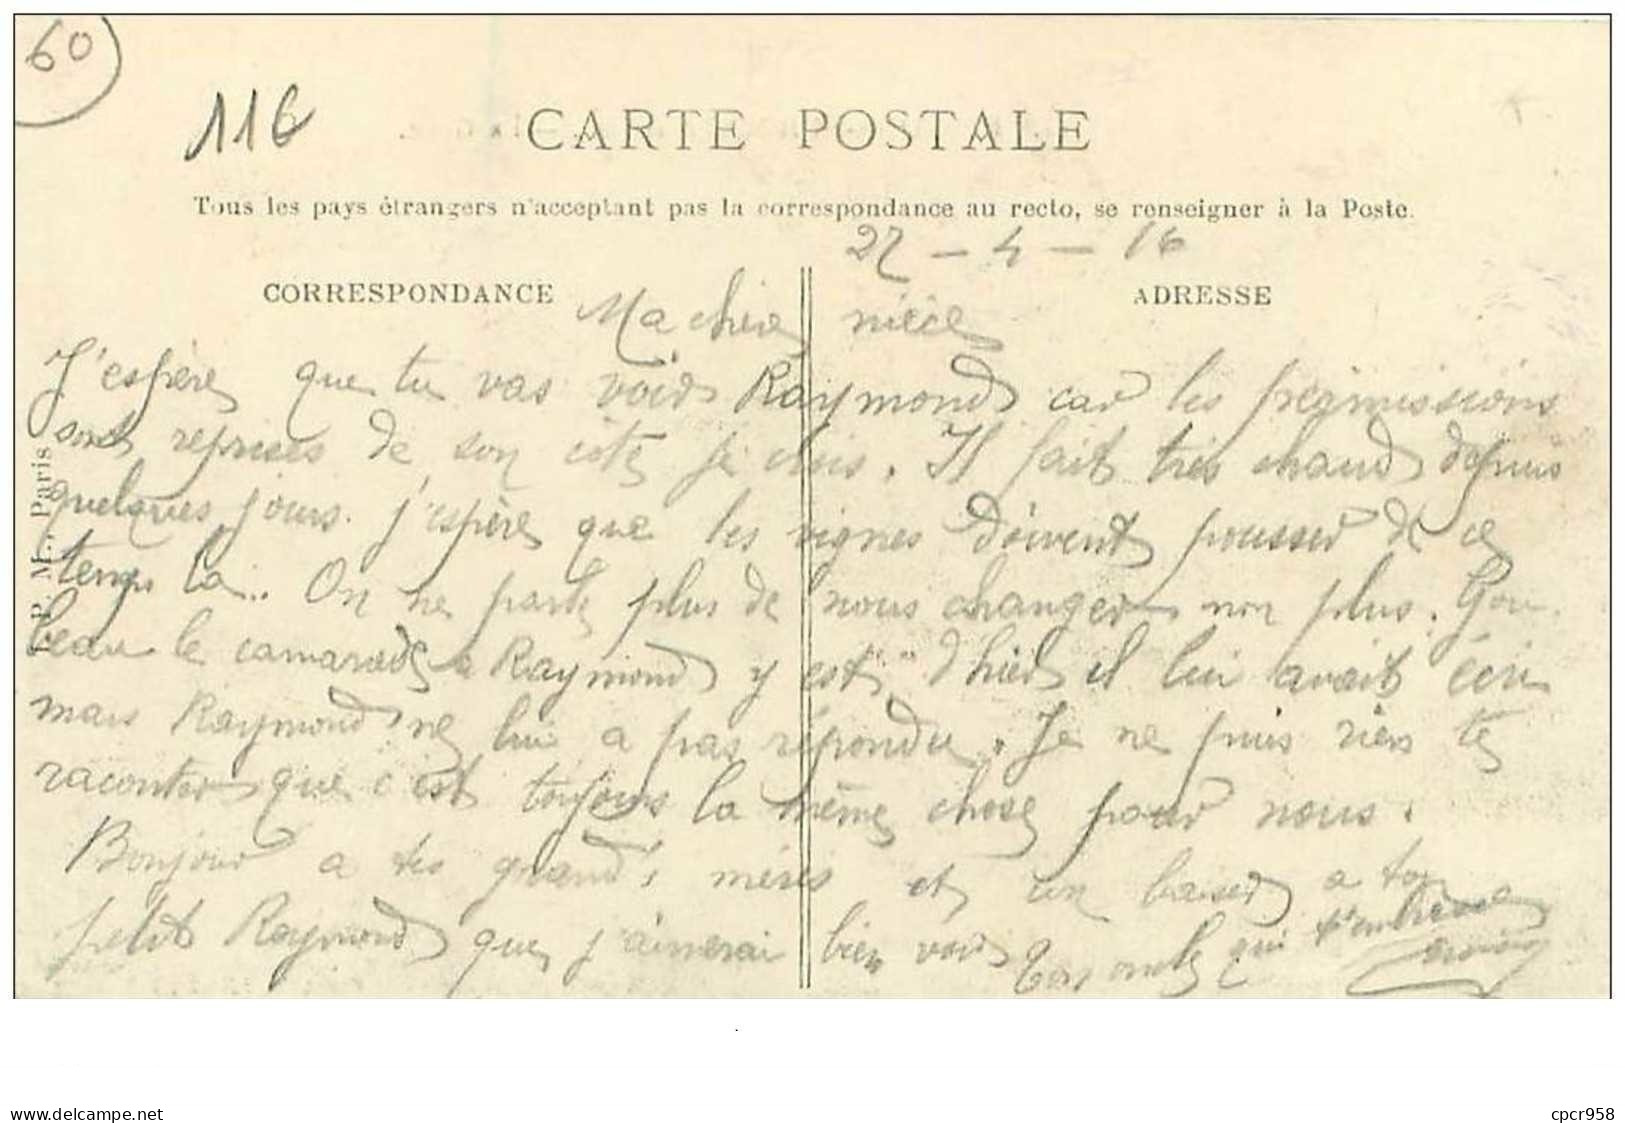 60
116
CARTE POSTALE
Tous les pays étrangers n'acceptant pas la correspondance au recto, se renseigner à la Poste.
27 - 4 - 16
CORRESPONDANCE
ADRESSE
Ma chère nièce
J'espère que tu vas voir Raymond car les permissions
sont reprises de son côté je crois. Il fait très chaud depuis
quelques jours. j'espère que les vignes doivent pousser de ce
temps la.. On ne parle plus de nous changer non plus. Gou-
beau le camarade a Raymond y est d'hier il lui avait écri
mais Raymond ne lui a pas répondu. Je ne puis rien te
raconter que c'est toujours la même chose pour nous.
Bonjour a tes grand's mères et un baiser a ton
petit Raymond que j'aimerai bien voir Ton oncle qui t'embrasse
P. M., Paris
www.delcampe.net
cpcr958